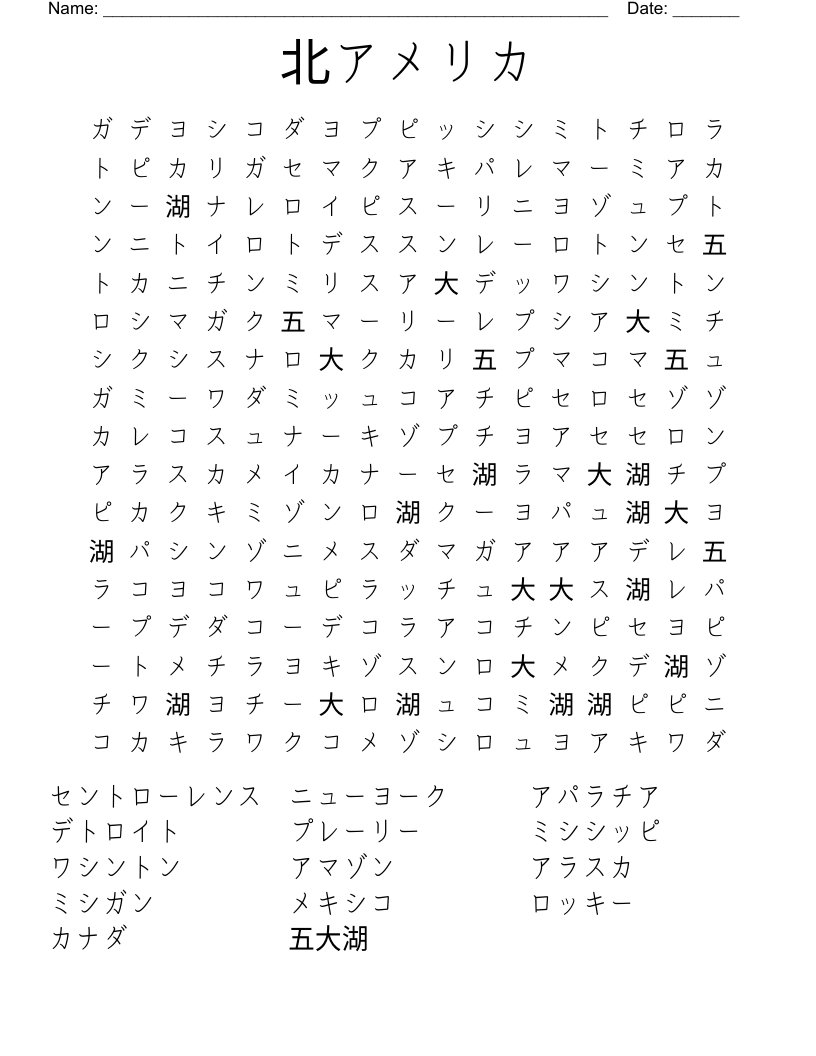 Name: _____________________________________________________ Date: _______
北アメリカ
ガ デ ヨ シ コ ダ ヨ プ ピ ッ シ シ ミ ト チ ロ ラ
ト ピ カ リ ガ セ マ ク ア キ パ レ マ ー ミ ア カ
ン ー 湖 ナ レ ロ イ ピ ス ー リ ニ ヨ ゾ ュ プ ト
ン ニ ト イ ロ ト デ ス ス ン レ ー ロ ト ン セ 五
ト カ ニ チ ン ミ リ ス ア 大 デ ッ ワ シ ン ト ン
ロ シ マ ガ ク 五 マ ー リ ー レ プ シ ア 大 ミ チ
シ ク シ ス ナ ロ 大 ク カ リ 五 プ マ コ マ 五 ュ
ガ ミ ー ワ ダ ミ ッ ュ コ ア チ ピ セ ロ セ ゾ ゾ
カ レ コ ス ュ ナ ー キ ゾ プ チ ヨ ア セ セ ロ ン
ア ラ ス カ メ イ カ ナ ー セ 湖 ラ マ 大 湖 チ プ
ピ カ ク キ ミ ゾ ン ロ 湖 ク ー ヨ パ ュ 湖 大 ヨ
湖 パ シ ン ゾ ニ メ ス ダ マ ガ ア ア ア デ レ 五
ラ コ ヨ コ ワ ュ ピ ラ ッ チ ュ 大 大 ス 湖 レ パ
ー プ デ ダ コ ー デ コ ラ ア コ チ ン ピ セ ヨ ピ
ー ト メ チ ラ ヨ キ ゾ ス ン ロ 大 メ ク デ 湖 ゾ
チ ワ 湖 ヨ チ ー 大 ロ 湖 ュ コ ミ 湖 湖 ピ ピ ニ
コ カ キ ラ ワ ク コ メ ゾ シ ロ ュ ヨ ア キ ワ ダ
セントローレンス ニューヨーク アパラチア
デトロイト プレーリー ミシシッピ
ワシントン アマゾン アラスカ
ミシガン メキシコ ロッキー
カナダ 五大湖